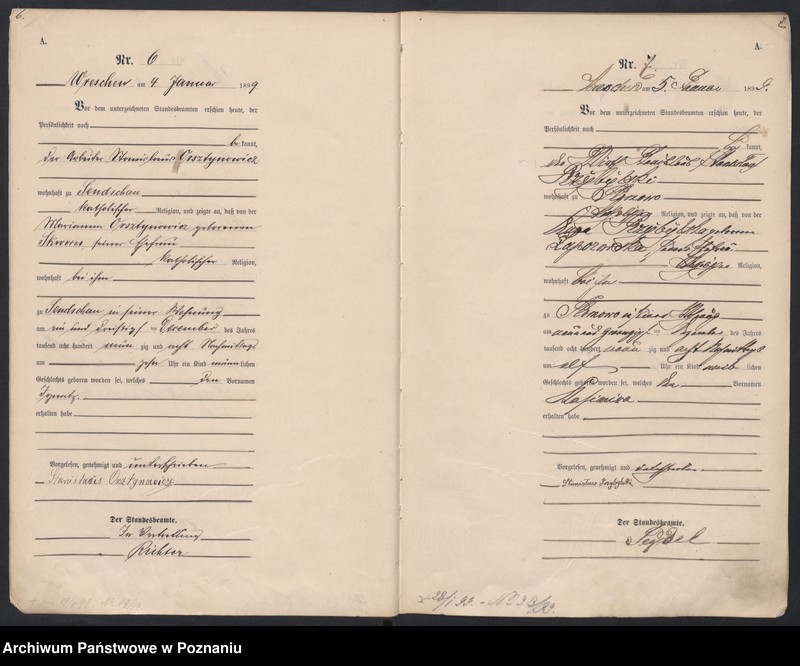 6.
A.
Nr. 6
Wreschen am 4. Januar 1899
Vor dem unterzeichneten Standesbeamten erschien heute, der
Persönlichkeit nach
be kannt,
der Arbeiter Stanislaus Orsztynowicz
wohnhaft zu Sendschau
katholischer Religion, und zeigte an, daß von der
Marianna Orsztynowicz geborenen
Skweres, seiner Ehefrau
katholischer Religion,
wohnhaft bei ihm
zu Sendschau in seiner Wohnung
am ein und dreißigsten Dezember des Jahres
tausend acht hundert neun zig und acht Nachmittags
um zehn Uhr ein Kind männ lichen
Geschlechts geboren worden sei, welches den Vornamen
Ignatz
erhalten habe
Vorgelesen, genehmigt und unterschrieben
Stanislaus Orsztynowicz
Der Standesbeamte.
In Vertretung
Richter
A.
Nr. 7.
Wreschen am 5. Januar 1899.
Vor dem unterzeichneten Standesbeamten erschien heute, der
Persönlichkeit nach
be kannt,
der Wirth Stanislaus
Przybylski
wohnhaft zu
katholischer Religion, und zeigte an, daß von der
Przybylska geborenen
seiner Ehefrau
katholischer Religion,
wohnhaft bei ihm
zu in seiner Wohnung
am neun und zwanzigsten Dezember des Jahres
tausend acht hundert neun zig und acht Nachmittags
um elf Uhr ein Kind weib lichen
Geschlechts geboren worden sei, welches den Vornamen
erhalten habe
Vorgelesen, genehmigt und unterschrieben
Stanislaus Przybylski
Der Standesbeamte.
Seydel
Archiwum Państwowe w Poznaniu